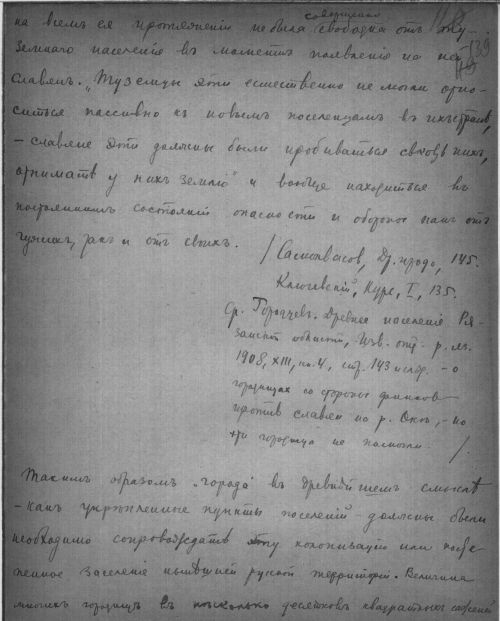 совершенно
на всемъ ея протяженіи не была свободна отъ ту-
земнаго населенія въ моментъ появленія на ней
Славянъ. „Туземцы эти естественно не могли отно-
ситься пассивно къ новымъ поселенцамъ въ ихъ странѣ,
– славяне эти должны были пробиваться сквозь нихъ,
отнимать у нихъ землю" и вообще находиться въ
постоянномъ состояніи опасности и обороны какъ отъ
чужихъ, такъ и отъ своихъ. /Самоквасов, Др. 145.
Ключевскій, Курс, I, 135.
Ср. Городчев. Древнее населеніе Ря-
занской области, Изв. отд. р. яз.
1908, XIII, кн. 4, стр. 143 и слѣд. – о
городищах со стороны финнов
против славян по р. Окѣ, – но
эти городища не помогли. /.
Такимъ образомъ „города" въ древнѣйшемъ смыслѣ
– какъ укрѣпленные пункты поселеній – должны были
необходимо сопровождать эту колонизацію или
заселеніе нынѣшней русской территоріи. Величина
многихъ городищъ въ нѣсколько десятковъ квадратныхъ саженей